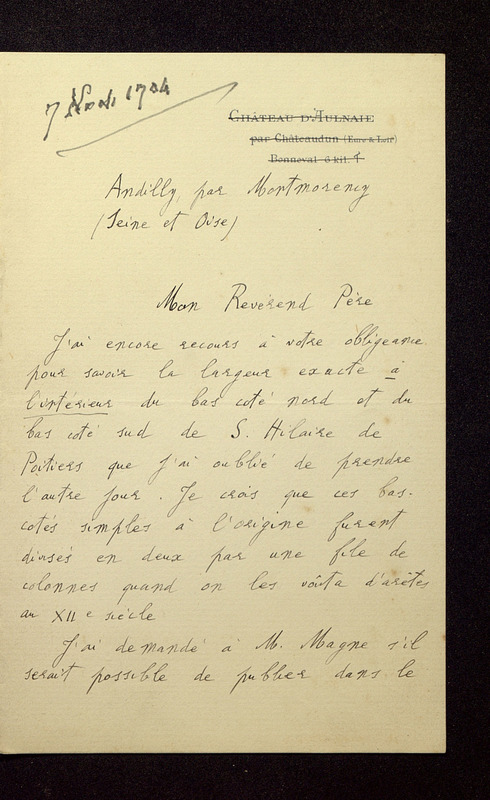 7
CHÂTEAU D'AULNAIE
par Châteaudun (Eure & Loir)
Bonneval 6 kil.
Andilly, par Montmorency
(Seine et Oise)
Mon Révérend Père
J'ai encore recours à votre obligeance
pour savoir la largeur exacte à
l'intérieur du bas coté nord et du
bas coté sud de S. Hilaire de
Poitiers que j'ai oublié de prendre
l'autre jour. Je crois que ces bas-
cotés simples à l'origine furent
divisés en deux par une file de
colonnes quand on les voûta d'arêtes
au XIIe siècle
J'ai demandé à M. Magne s'il
serait possible de publier dans le